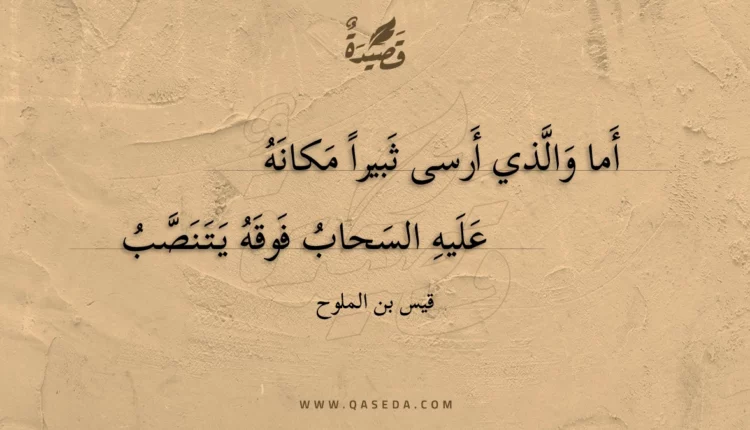 قَصِيدَةٌ
أَما وَالَّذي أَرسى ثَبيراً مَكانَهُ
عَلَيهِ السَحابُ فَوقَهُ يَتَنَصَّبُ
قيس بن الملوح
WWW.QASEDA.COM